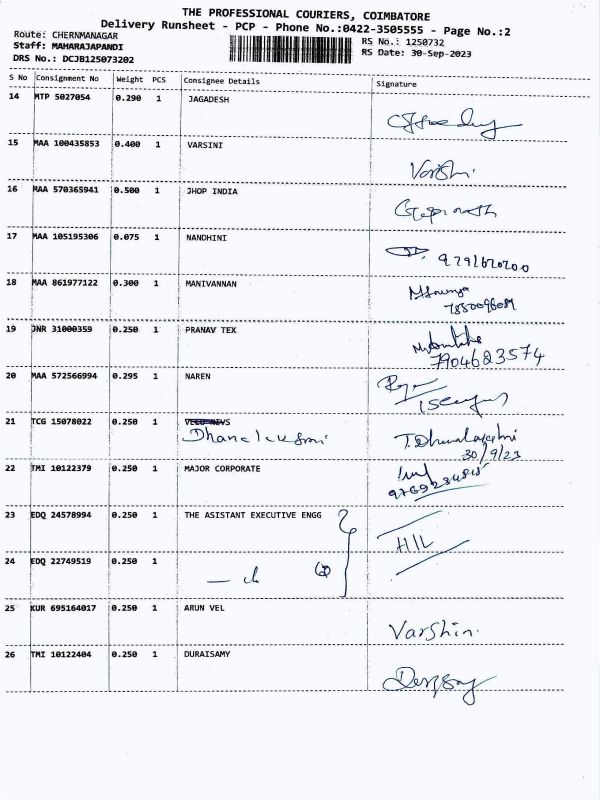 THE PROFESSIONAL COURIERS, COIMBATORE
Delivery Runsheet - PCP - Phone No.:0422-3505555 - Page No.:2
Route: CHERNMANAGAR
RS No.: 1250732
Staff: MAHARAJAPANDI
RS Date: 30-Sep-2023
DRS No.: DCJB125073202
S No Consignment No Weight PCS Consignee Details Signature
14 MTP 5027054 0.290 1 JAGADESH
15 MAA 100435853 0.400 1 VARSINI
Varshi
16 MAA 570365941 0.500 1 JHOP INDIA
Gopinath
17 MAA 105195306 0.075 1 NANDHINI
18 MAA 861977122 0.300 1 MANIVANNAN
19 JNR 31000359 0.250 1 PRANAV TEX
7904623574
20 MAA 572566994 0.295 1 NAREN
21 TCG 15078022 0.250 1
Dhanalakshmi T.Dhanalakshmi
30/9/23
22 TMI 10122379 0.250 1 MAJOR CORPORATE
23 EDQ 24578994 0.250 1 THE ASISTANT EXECUTIVE ENGG
HIL
24 EDQ 22749519 0.250 1
25 KUR 695164017 0.250 1 ARUN VEL
Varshin.
26 TMI 10122404 0.250 1 DURAISAMY